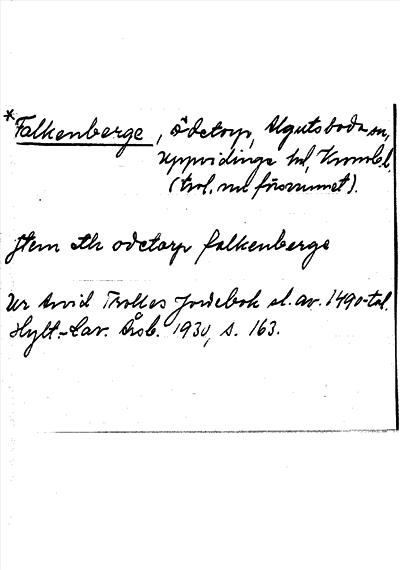 *Falkenberge, ödetorp, Algutsboda sn,
Uppvidinge hd, Kronobl.
(trol. nu försvunnet).
Jtem eth odetorp falkenberge
Ur Arvid Trolles Jordebok sl. av. 1490-tal.
Hylt.-Cav. Årsb. 1930, s. 163.